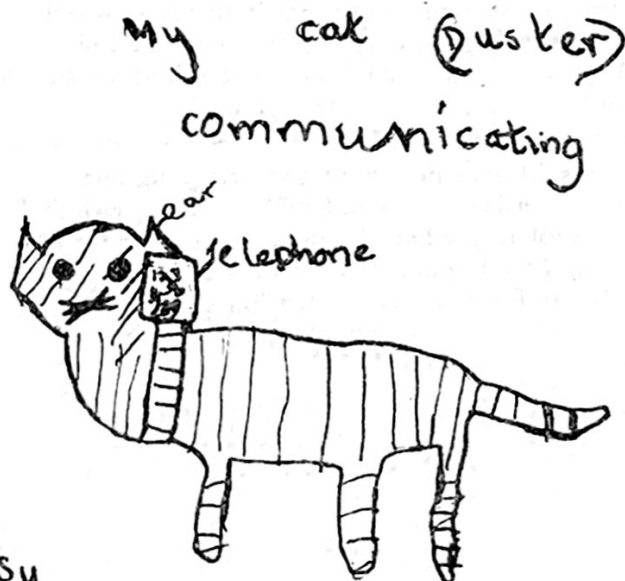 My cat (Duster)
communicating
ear
Telephone
su